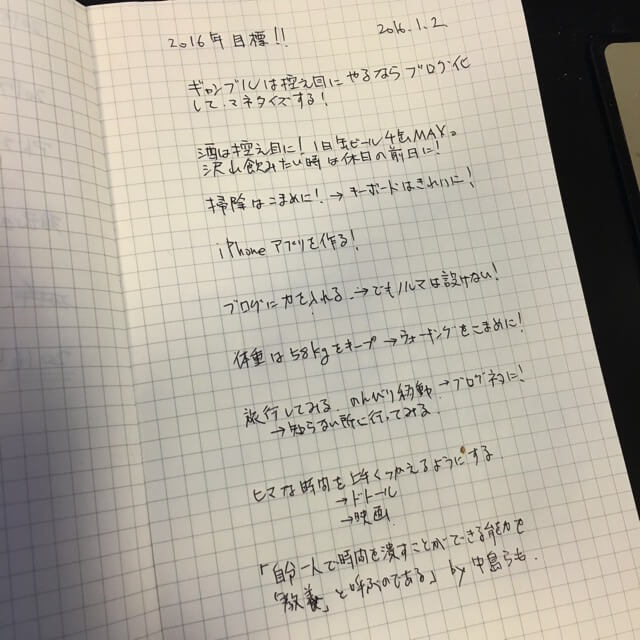 2016年目標!!
2016.1.2
ギャンブルは控え目に やるならブログ化
して、マネタイズする!
酒は控え目に! 1日缶ビール4缶MAX。
沢山飲みたい時は休日の前日に!
掃除はこまめに! → キーボードはきれいに!
iPhoneアプリを作る!
ブログに力を入れる。→でもノルマは設けない!
体重は58kgをキープ → ウォーキングをこまめに!
旅行してみる のんびり移動 → ブログネタに!
→知らない所に行ってみる。
ヒマな時間を上手くつかえるようにする
→ドトール
→映画
「自分一人で時間を潰すことができる能力を
「教養」と呼ぶのである」 by 中島らも.